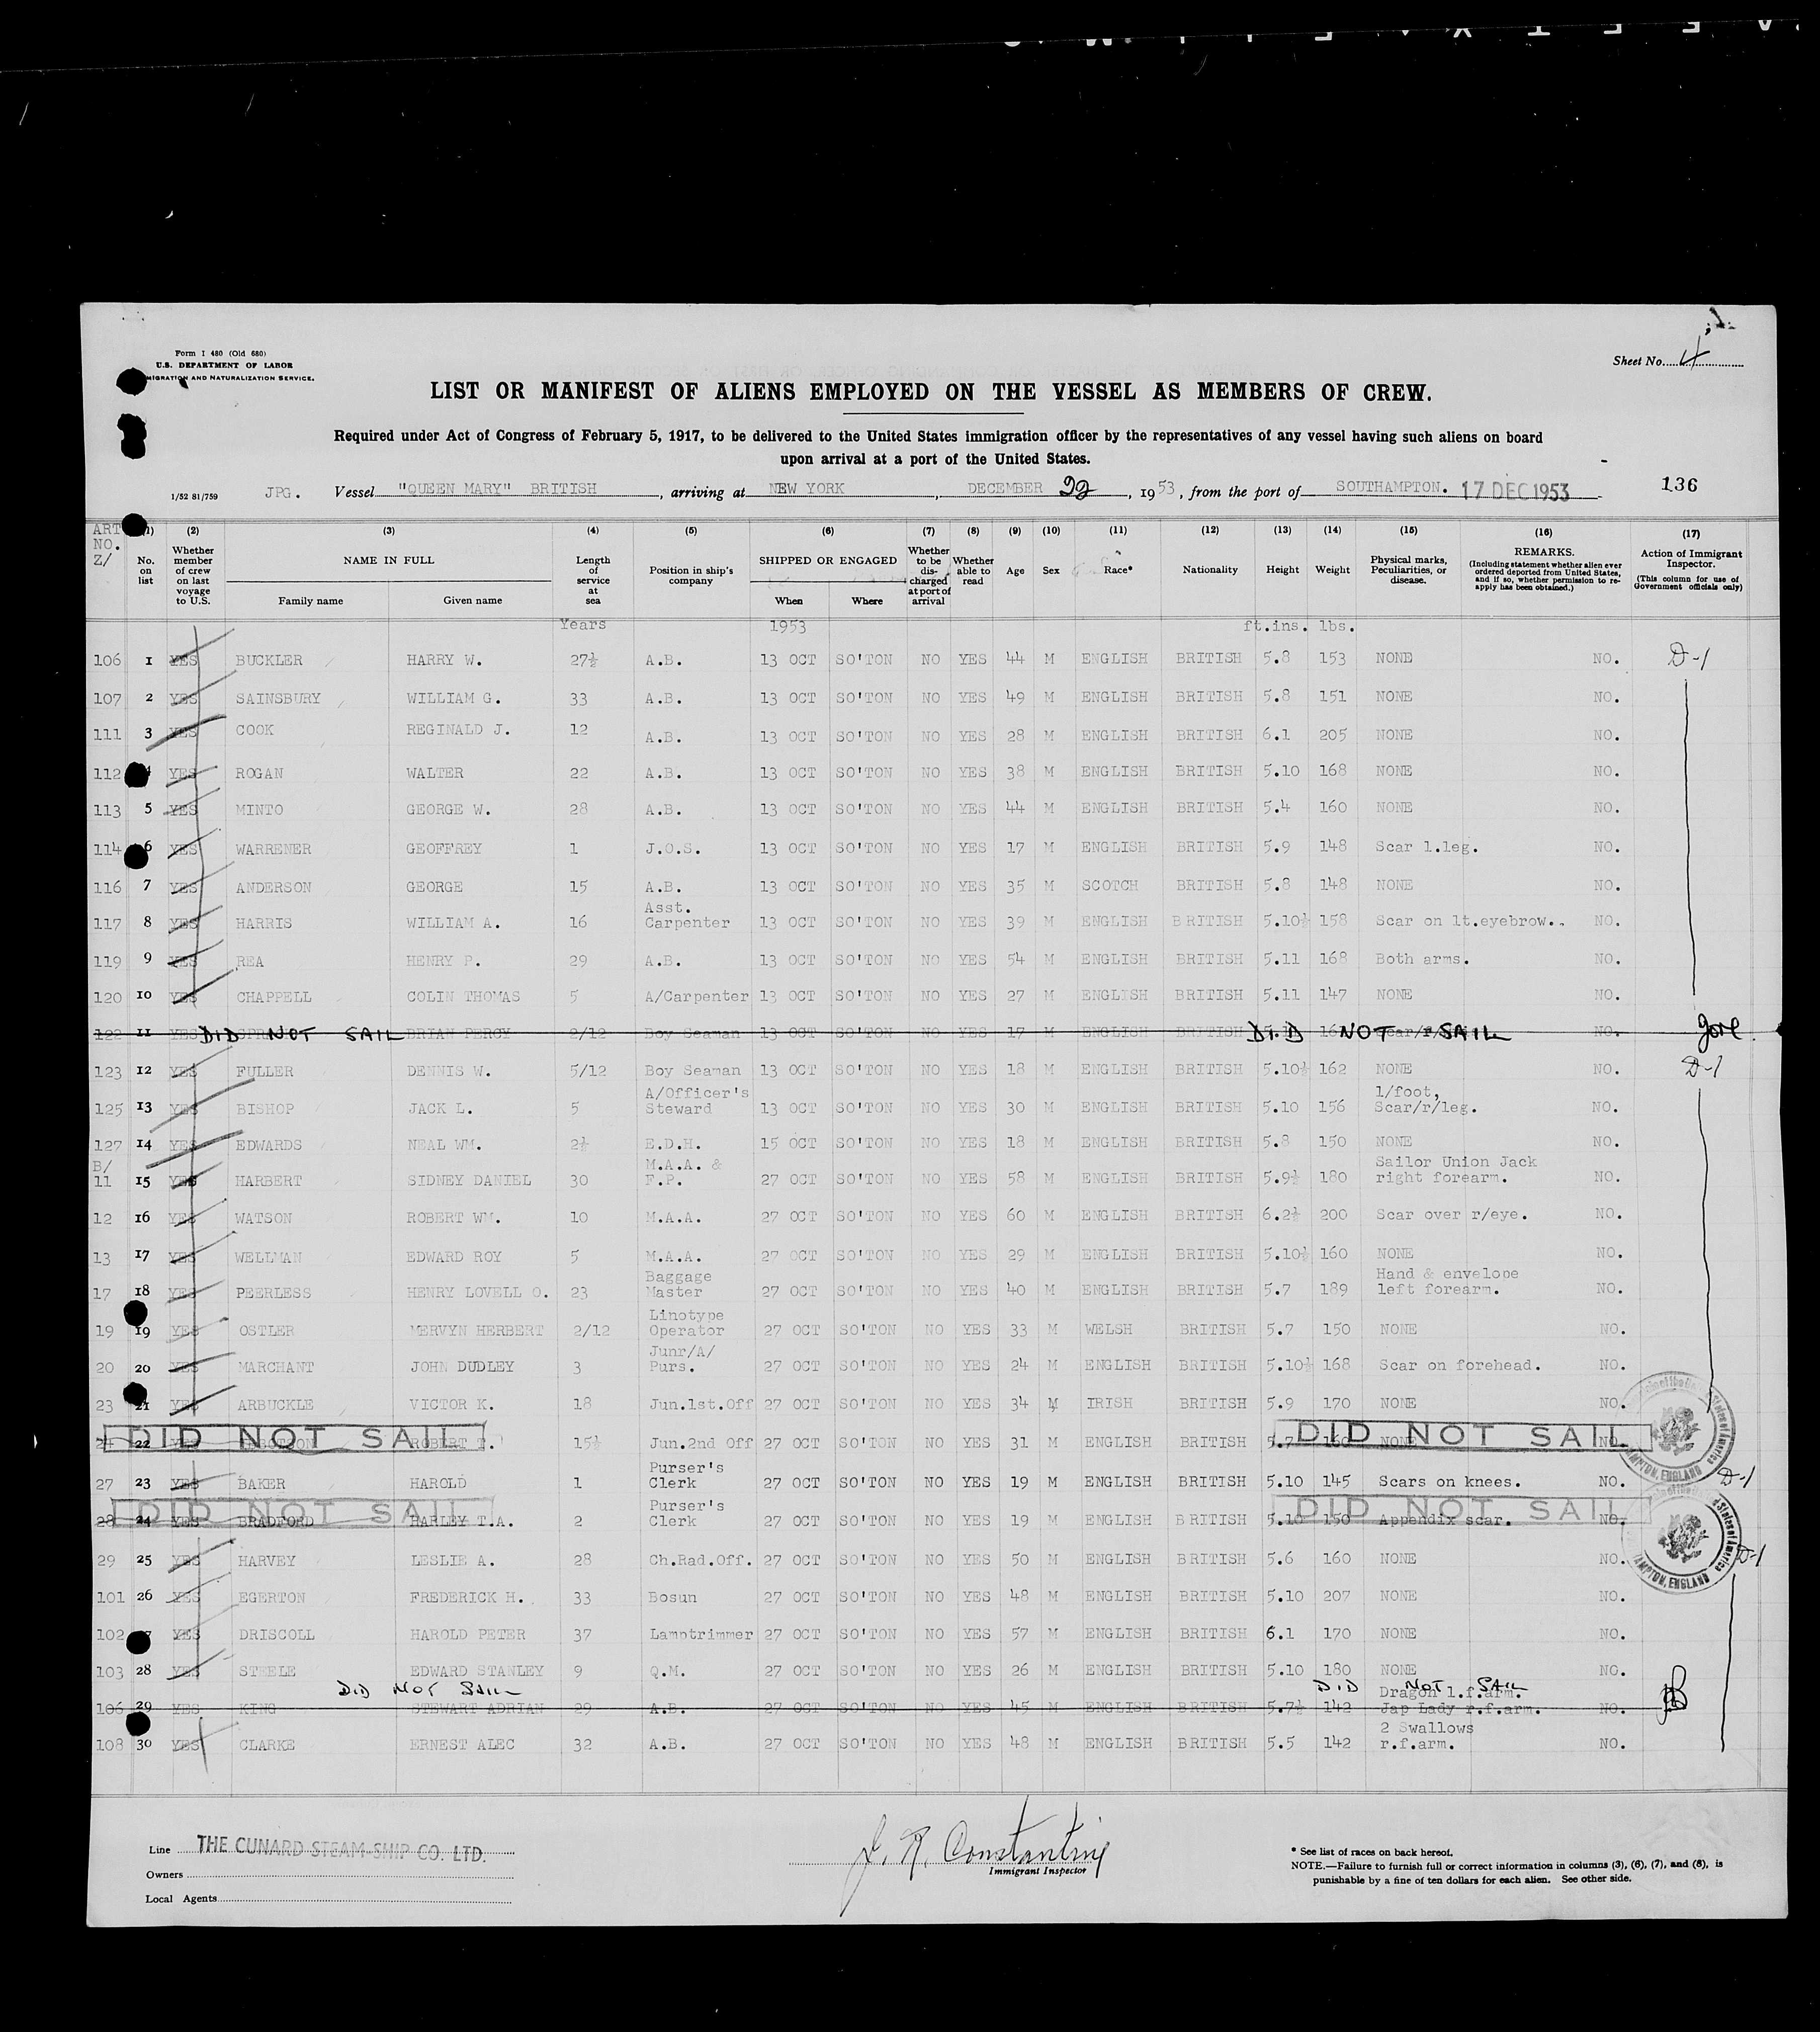 Form I 480 (Old 680)
U.S. DEPARTMENT OF LABOR
MIGRATION AND NATURALIZATION SERVICE.
Sheet No. 4
LIST OR MANIFEST OF ALIENS EMPLOYED ON THE VESSEL AS MEMBERS OF CREW.
Required under Act of Congress of February 5, 1917, to be delivered to the United States immigration officer by the representatives of any vessel having such aliens on board
upon arrival at a port of the United States.
1/52 81/759 JPG. Vessel "QUEEN MARY" BRITISH, arriving at NEW YORK, DECEMBER 22, 1953, from the port of SOUTHAMPTON. 17 DEC 1953 136
ART NO. Z/ (1) No. on list (2) Whether member of crew on last voyage to U.S. (3) NAME IN FULL Family name Given name (4) Length of service at sea (5) Position in ship's company (6) SHIPPED OR ENGAGED When Where (7) Whether to be discharged at port of arrival (8) Whether able to read (9) Age (10) Sex (11) Race* (12) Nationality (13) Height (14) Weight (15) Physical marks, Peculiarities, or disease. (16) REMARKS. (Including statement whether alien ever ordered deported from United States, and if so, whether permission to re-apply has been obtained.) (17) Action of Immigrant Inspector. (This column for use of Government officials only)
Years 1953 ft.ins. lbs.
106 1 YES BUCKLER HARRY W. 27½ A.B. 13 OCT SO'TON NO YES 44 M ENGLISH BRITISH 5.8 153 NONE NO. D-1
107 2 YES SAINSBURY WILLIAM G. 33 A.B. 13 OCT SO'TON NO YES 49 M ENGLISH BRITISH 5.8 151 NONE NO.
111 3 YES COOK REGINALD J. 12 A.B. 13 OCT SO'TON NO YES 28 M ENGLISH BRITISH 6.1 205 NONE NO.
112 4 YES ROGAN WALTER 22 A.B. 13 OCT SO'TON NO YES 38 M ENGLISH BRITISH 5.10 168 NONE NO.
113 5 YES MINTO GEORGE W. 28 A.B. 13 OCT SO'TON NO YES 44 M ENGLISH BRITISH 5.4 160 NONE NO.
114 6 YES WARRENER GEOFFREY 1 J.O.S. 13 OCT SO'TON NO YES 17 M ENGLISH BRITISH 5.9 148 Scar l.leg. NO.
116 7 YES ANDERSON GEORGE 15 A.B. 13 OCT SO'TON NO YES 35 M SCOTCH BRITISH 5.8 148 NONE NO.
117 8 YES HARRIS WILLIAM A. 16 Asst. Carpenter 13 OCT SO'TON NO YES 39 M ENGLISH BRITISH 5.10½ 158 Scar on lt.eyebrow.. NO.
119 9 YES REA HENRY P. 29 A.B. 13 OCT SO'TON NO YES 54 M ENGLISH BRITISH 5.11 168 Both arms. NO.
120 10 YES CHAPPELL COLIN THOMAS 5 A/Carpenter 13 OCT SO'TON NO YES 27 M ENGLISH BRITISH 5.11 147 NONE NO.
122 11 YES DID NOT SAIL BRIAN PERCY 2/12 Boy Seaman 13 OCT SO'TON NO YES 17 M ENGLISH BRITISH DID NOT SAIL NO.
123 12 YES FULLER DENNIS W. 5/12 Boy Seaman 13 OCT SO'TON NO YES 18 M ENGLISH BRITISH 5.10½ 162 NONE NO. D-1
125 13 YES BISHOP JACK L. 5 A/Officer's Steward 13 OCT SO'TON NO YES 30 M ENGLISH BRITISH 5.10 156 l/foot, Scar/r/leg. NO.
127 14 YES EDWARDS NEAL WM. 2½ E.D.H. 15 OCT SO'TON NO YES 18 M ENGLISH BRITISH 5.8 150 NONE NO.
B/ 11 15 YES HARBERT SIDNEY DANIEL 30 M.A.A. & F.P. 27 OCT SO'TON NO YES 58 M ENGLISH BRITISH 5.9½ 180 Sailor Union Jack right forearm. NO.
12 16 YES WATSON ROBERT WM. 10 M.A.A. 27 OCT SO'TON NO YES 60 M ENGLISH BRITISH 6.2½ 200 Scar over r/eye. NO.
13 17 YES WELLMAN EDWARD ROY 5 M.A.A. 27 OCT SO'TON NO YES 29 M ENGLISH BRITISH 5.10½ 160 NONE NO.
17 18 YES PEERLESS HENRY LOVELL O. 23 Baggage Master 27 OCT SO'TON NO YES 40 M ENGLISH BRITISH 5.7 189 Hand & envelope left forearm. NO.
19 19 YES OSTLER MERVYN HERBERT 2/12 Linotype Operator 27 OCT SO'TON NO YES 33 M WELSH BRITISH 5.7 150 NONE NO.
20 20 YES MARCHANT JOHN DUDLEY 3 Junr/A/ Purs. 27 OCT SO'TON NO YES 24 M ENGLISH BRITISH 5.10½ 168 Scar on forehead. NO.
23 21 YES ARBUCKLE VICTOR K. 18 Jun.1st.Off 27 OCT SO'TON NO YES 34 M IRISH BRITISH 5.9 170 NONE NO.
24 22 DID NOT SAIL ROBERT 15½ Jun.2nd Off 27 OCT SO'TON NO YES 31 M ENGLISH BRITISH 5.7 160 NONE DID NOT SAIL NO.
27 23 YES BAKER HAROLD 1 Purser's Clerk 27 OCT SO'TON NO YES 19 M ENGLISH BRITISH 5.10 145 Scars on knees. NO. D-1
28 24 YES DID NOT SAIL BRADFORD HARLEY T.A. 2 Purser's Clerk 27 OCT SO'TON NO YES 19 M ENGLISH BRITISH 5.10 150 Appendix scar. DID NOT SAIL NO.
29 25 YES HARVEY LESLIE A. 28 Ch.Rad.Off. 27 OCT SO'TON NO YES 50 M ENGLISH BRITISH 5.6 160 NONE NO. D-1
101 26 YES EGERTON FREDERICK H. 33 Bosun 27 OCT SO'TON NO YES 48 M ENGLISH BRITISH 5.10 207 NONE NO.
102 YES DRISCOLL HAROLD PETER 37 Lamptrimmer 27 OCT SO'TON NO YES 57 M ENGLISH BRITISH 6.1 170 NONE NO.
103 28 YES STEELE EDWARD STANLEY 9 Q.M. 27 OCT SO'TON NO YES 26 M ENGLISH BRITISH 5.10 180 NONE NO.
DID NOT SAIL DID NOT SAIL
106 29 YES KING STEWART ADRIAN 29 A.B. 27 OCT SO'TON NO YES 45 M ENGLISH BRITISH 5.7½ 142 Dragon l.f.arm. Jap Lady r.f.arm. NO.
108 30 YES CLARKE ERNEST ALEC 32 A.B. 27 OCT SO'TON NO YES 48 M ENGLISH BRITISH 5.5 142 2 Swallows r.f.arm. NO.
Line THE CUNARD STEAM-SHIP CO. LTD.
Owners
Local Agents
J. R. Constantine
Immigrant Inspector
* See list of races on back hereof.
NOTE.—Failure to furnish full or correct information in columns (3), (6), (7), and (8), is
punishable by a fine of ten dollars for each alien. See other side.